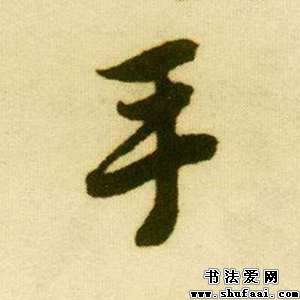 手
书法爱网
www.shufaai.com